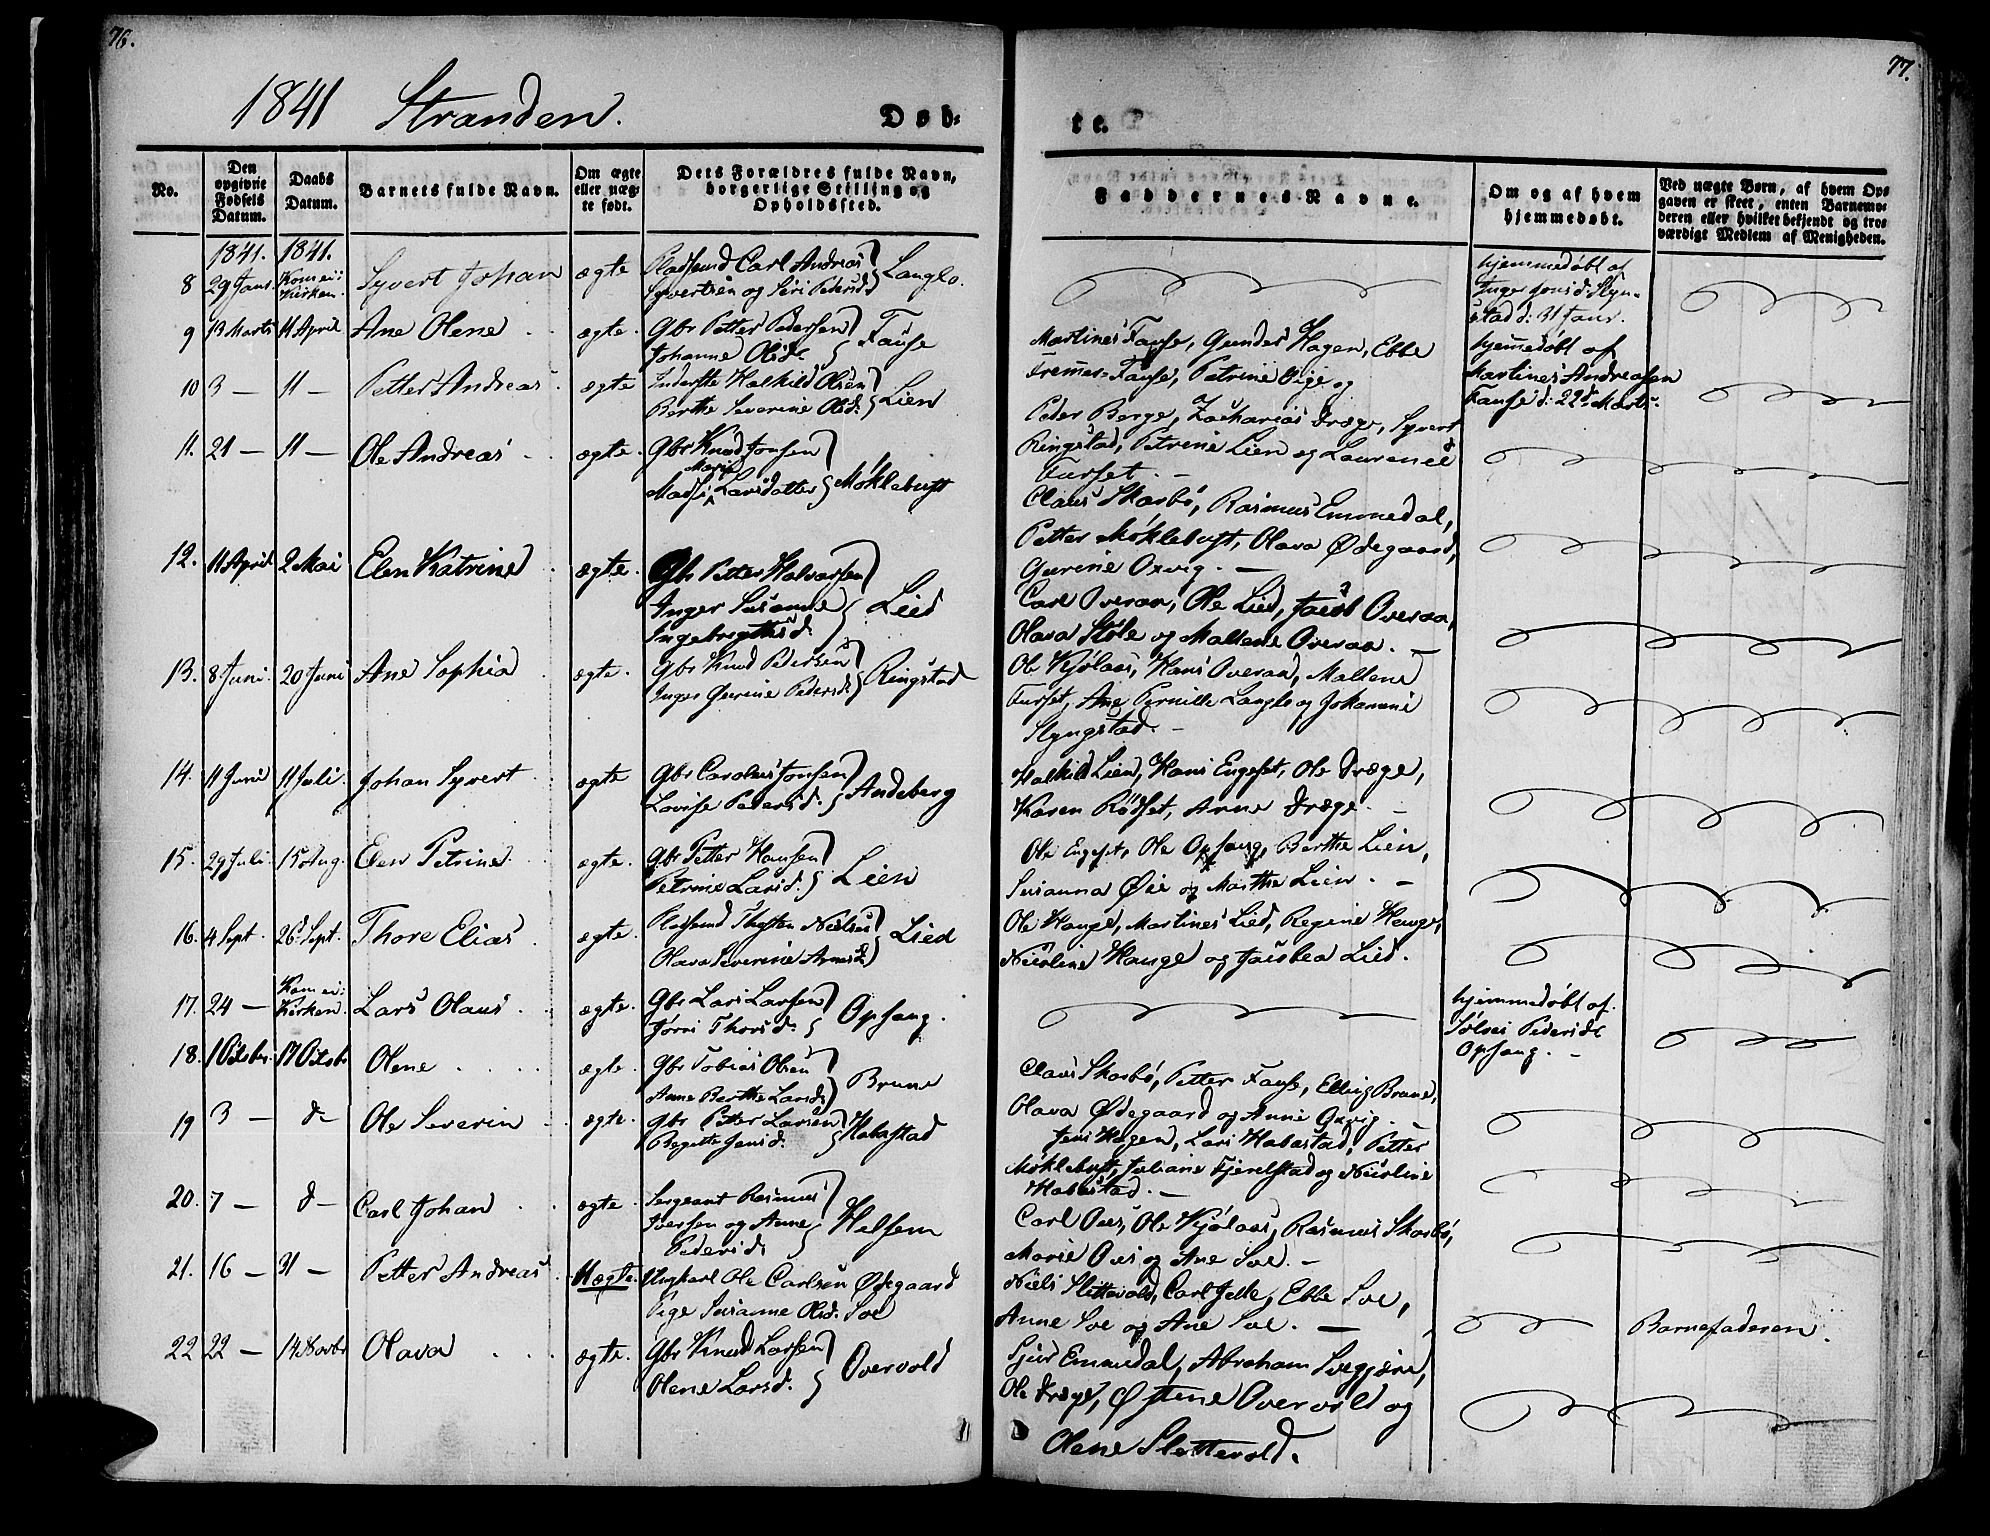 76.
1841 Stranden.
Døb-
No.
Den opgivne Fødsels Datum.
Daabs Datum.
Barnets fulde Navn.
Om ægte eller uægte født.
Dets Forældres fulde Navn, borgerlige Stilling og Opholdssted.
1841. 1841.
8 29 Janr Kom ei i Kirken. Syvert Johan ægte Pladsmd Carl Andreas Syvertsen og Siri Pedersd. Langlo.
9 13 Marts 11 April Ane Olene ægte. Gbr Petter Pedersen Johanne Olsd. Fause
10 3 — 11 — Petter Andreas ægte Inderste Halkild Olsen Berthe Severine Olsd. Lien
11. 21 — 11 — Ole Andreas ægte. Gbr Knud Jonsen Madsi Marie Larsdatter Møklebust
12. 11 April 2 Mai Elen Katrine ægte. Gbr Petter Halvorsen Inger Susanne Ingebrigtsd. Lied
13. 8 Juni 20 Juni Ane Sophia ægte. Gbr Knud Pedersen Inger Gurine Pedersd. Ringstad
14. 11 Juni 11 Juli. Johan Syvert ægte Gbr Carolus Jonsen Lovise Pedersd. Andeberg
15. 29 Juli 15 Aug. Elen Petrine ægte. Gbr Petter Hansen Petrine Larsd. Lien
16. 4 Sept. 26 Sept. Thore Elias ægte. Pladsmd Nielsen Olava Severine Lied
17. 24 — Kom ei i Kirken. Lars Olaus ægte. Gbr Lars Larsen Jørni Thorsd. Opsang.
18. 1 Octobr. 17 Octobr Olene ægte. Gbr Tobias Olsen Anne Berthe Larsd. Brune
19 3 — d— Ole Severin ægte. Gbr Petter Larsen Begitte Jensd. Habostad
20. 7 — d— Carl Johan ægte. Sergeant Rasmus Iversen og Anne Pedersd. Helsem
21. 16 — 31 — Petter Andreas Uægte. Ungkarl Ole Carlsen Ødegaard Pige Susanne Olsd. Soe
22 22 — 14 Novbr Olava ægte. Gbr Knud Larsen Olene Larsd. Overvold
77.
te.
Faddernes Navne.
Om og af hvem hjemmedøbt.
Ved uægte Børn, af hvem Opgaven er skeet, enten Barnemoderen eller hvilket bekjendt og troværdigt Medlem af Menigheden.
hjemmedøbt af
Inger Jonsd. Slyngstad d: 31 Janr.
Martines Fause, Gunder Hagen, Ebbe
Fremer-Fause, Petrine Vige og
hjemmedøbt af
Martines Andreasen
Fause d: 22de Marts.
Peder Berge, Zacharias Dræge, Syvert
Ringstad, Petrine Lien og Laurense
Furset. —
Claus Skorbø, Rasmus Emmedal,
Petter Møklebust, Olava Ødegaard,
Gurine Oxvig. —
Carl Overaa, Ole Lied, Jacob Overaa,
Olava Støle og Maltene Overaa. —
Ole Kjølaas, Hans Overaa, Maltene
Furset, Ane Pernille Langlo og Johanne
Slyngstad. —
Halkild Lien, Hans Engeset, Ole Dræge,
Karen Rødset, Anne Dræge. —
Ole Engeset, Ole Opsang, Berthe Lien,
Susanna Øie og Marthe Lien. —
Ole Hauge, Martines Lied, Regine Hauge,
Nicoline Hauge og Jacobea Lied.
hjemmedøbt af
Sølvei Pedersdr
Opsang. —
Claus Skorbø, Petter Fause, Elling Brune,
Olava Ødegaard og Anne Oxvig.
Jens Hagen, Lars Habostad, Petter
Møklebust, Juliane Fjerelstad og Nicoline
Habostad. —
Carl Oves, Ole Kjølaas, Rasmus Skorbø,
Marie Oves og Ane Soe. —
Niels Slettevold, Carl Jelle, Ebbe Soe,
Anne Soe og Ane Soe. —
Barnefaderen.
Sjur Emmedal, Abraham Svegjerde,
Ole Dræge, Østene Overvold og
Olene Slettevold.